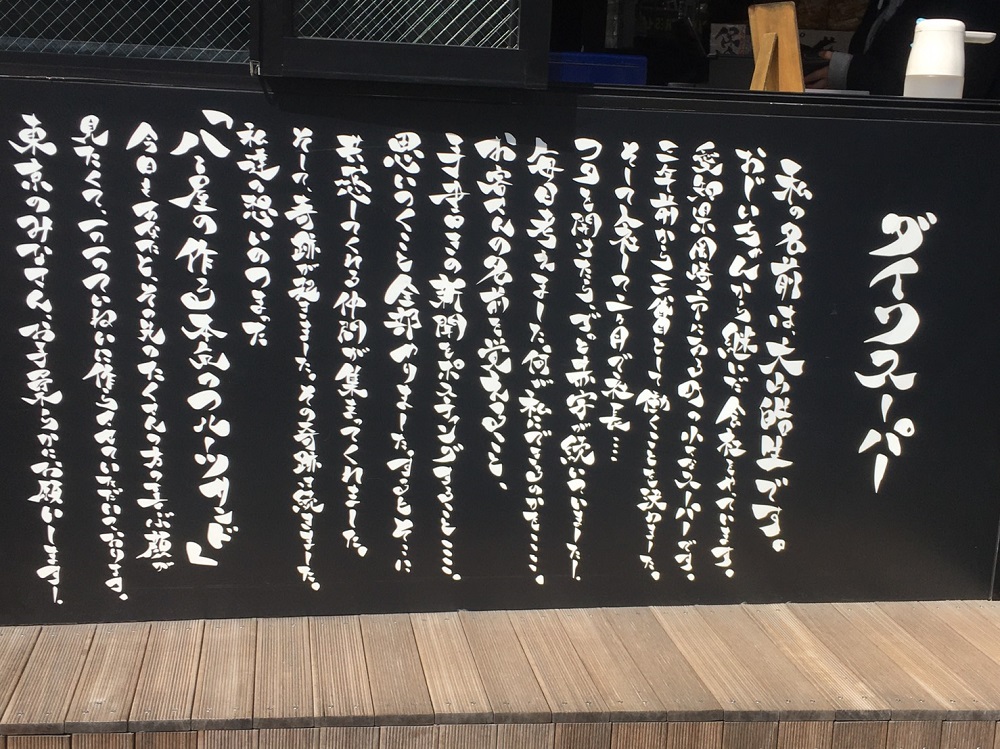 ダイワスーパー
私の名前は大山皓生です。
おじいちゃんから継いだ会社をやっています。
愛知県岡崎市にあるのの小さなスーパーです。
三年前から三代目として働くことを決めました。
そして入社して二ヶ月で社長…
フタを開けたらずっと赤字が続いていました!
毎日考えました何が私にできるのかを……。
お客さんの名前を覚えること、
手書きの新聞をポスティングすること……。
思いつくこと全部やりました。するとそこに
共感してくれる仲間が集まってくれました。
そして、奇跡が起きました。その奇跡は続きました。
私達の想いのつまった
「八百屋の作る本気のフルーツサンド」
今日もあなたと、その先のたくさんの方の喜ぶ顔が
見たくて、一つ一つていねいに作らさせていただいております。
東京のみなさん、お手柔らかにお願いします!